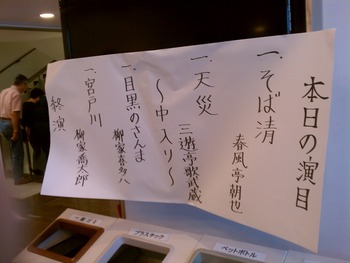 本日の演目
一、そば清
春風亭朝也
一、天災
三遊亭歌武蔵
〜中入り〜
一、目黒のさんま
柳家喜多八
一、宮戸川
柳家喬太郎
終演
プラスチック
ペットボトル